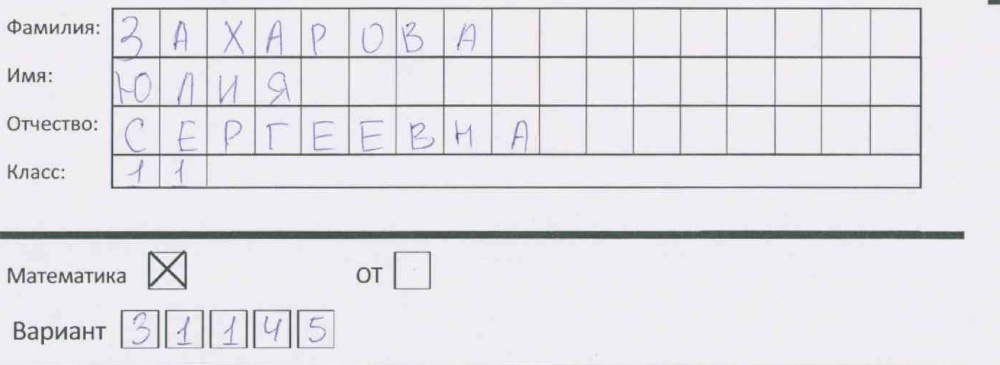 Фамилия: ЗАХАРОВА
Имя: ЮЛИЯ
Отчество: СЕРГЕЕВНА
Класс: 11
Математика ОТ
Вариант 31145